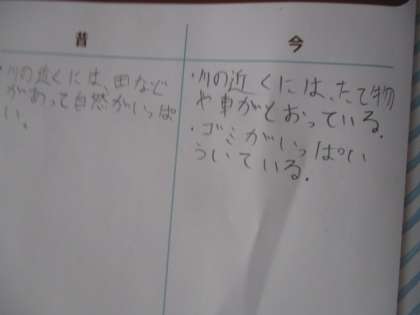 昔
・川の近くには、田など
があって自然がいっぱ
い。
今
・川の近くには、たて物
や車がとおっている。
・ゴミがいっぱい
ういている。